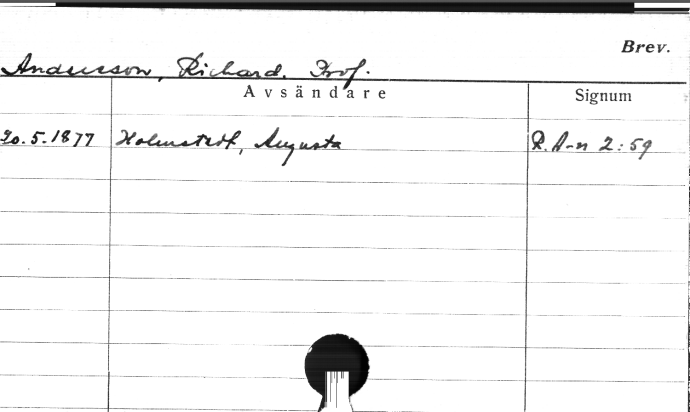 Brev.
Andersson, Richard. Prof.
Avsändare Signum
20.5.1877 Holmstedt, Augusta R.A-n 2:59